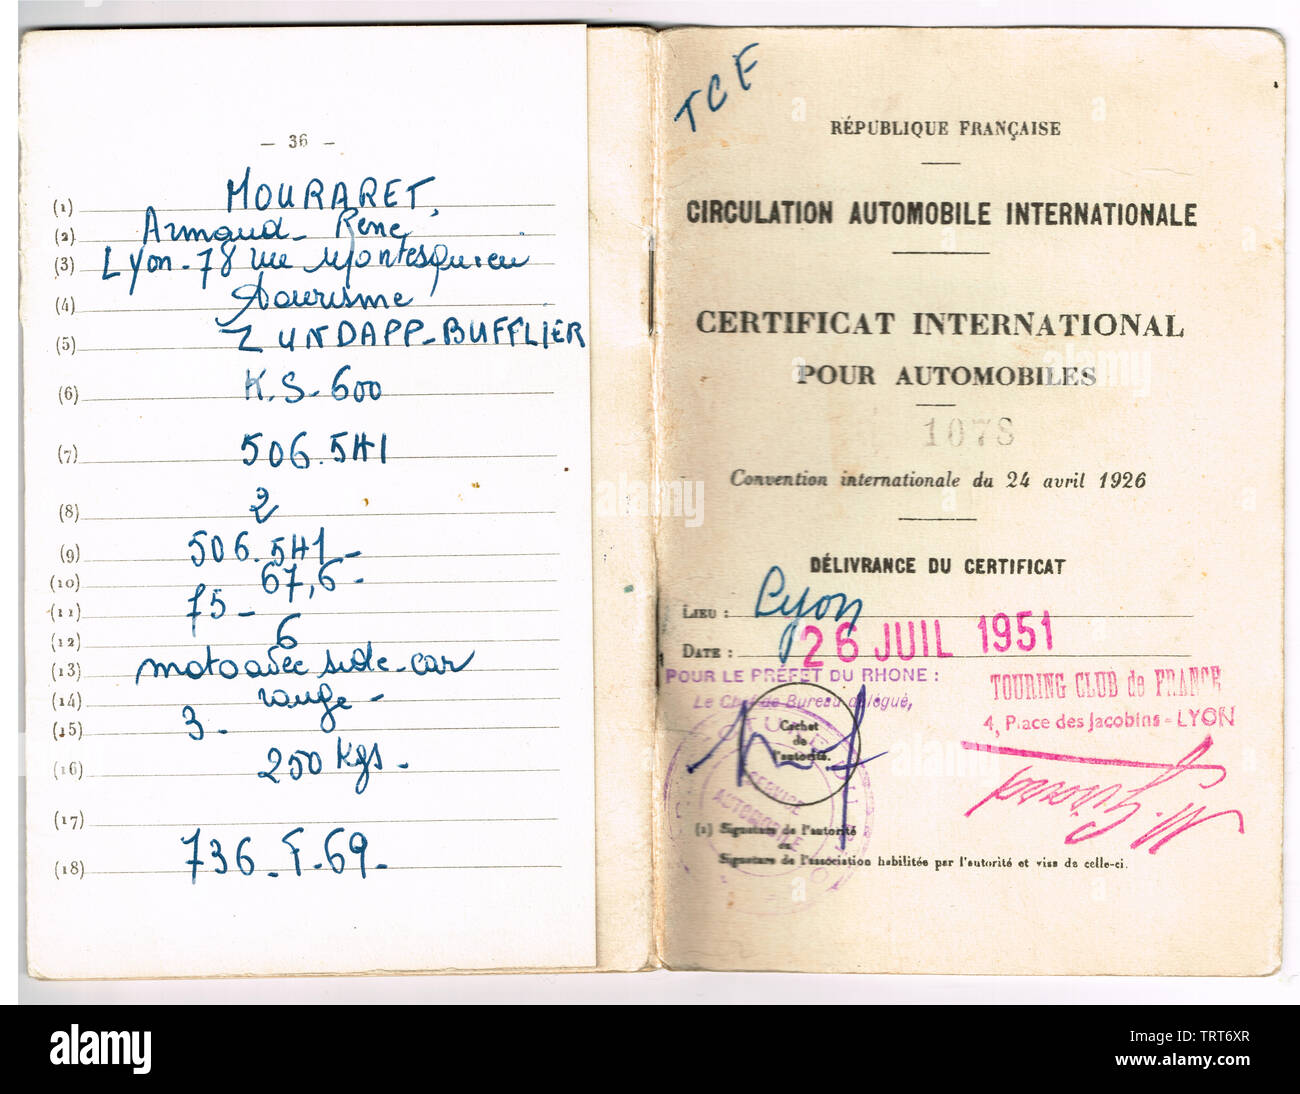 — 36 —
(1) MOURARET.
(2) Armand - René
(3) Lyon - 78 rue Montesquieu
(4) tourisme
(5) ZUNDAPP-BUFFLIER
(6) K.S-600
(7) 506.541
(8) 2
(9) 506.541 -
(10) 67,6 -
(11) 75 -
(12) 6
(13) moto avec side-car
(14) rouge -
(15) 3 -
(16) 250 Kgs -
(17)
(18) 736 - F - 69 -
TCF
RÉPUBLIQUE FRANÇAISE
CIRCULATION AUTOMOBILE INTERNATIONALE
CERTIFICAT INTERNATIONAL
POUR AUTOMOBILES
1078
Convention internationale du 24 avril 1926
DÉLIVRANCE DU CERTIFICAT
LIEU : Lyon
DATE : 26 JUIL 1951
POUR LE PRÉFET DU RHONE :
Le Chef de Bureau délégué,
TOURING CLUB de FRANCE
4, Place des Jacobins - LYON
Cachet
de
l'autorité.
SERVICE
AUTOMOBILE
(1) Signature de l'autorité
ou
Signature de l'association habilitée par l'autorité et visa de celle-ci.
alamy
Image ID: TRT6XR
www.alamy.com